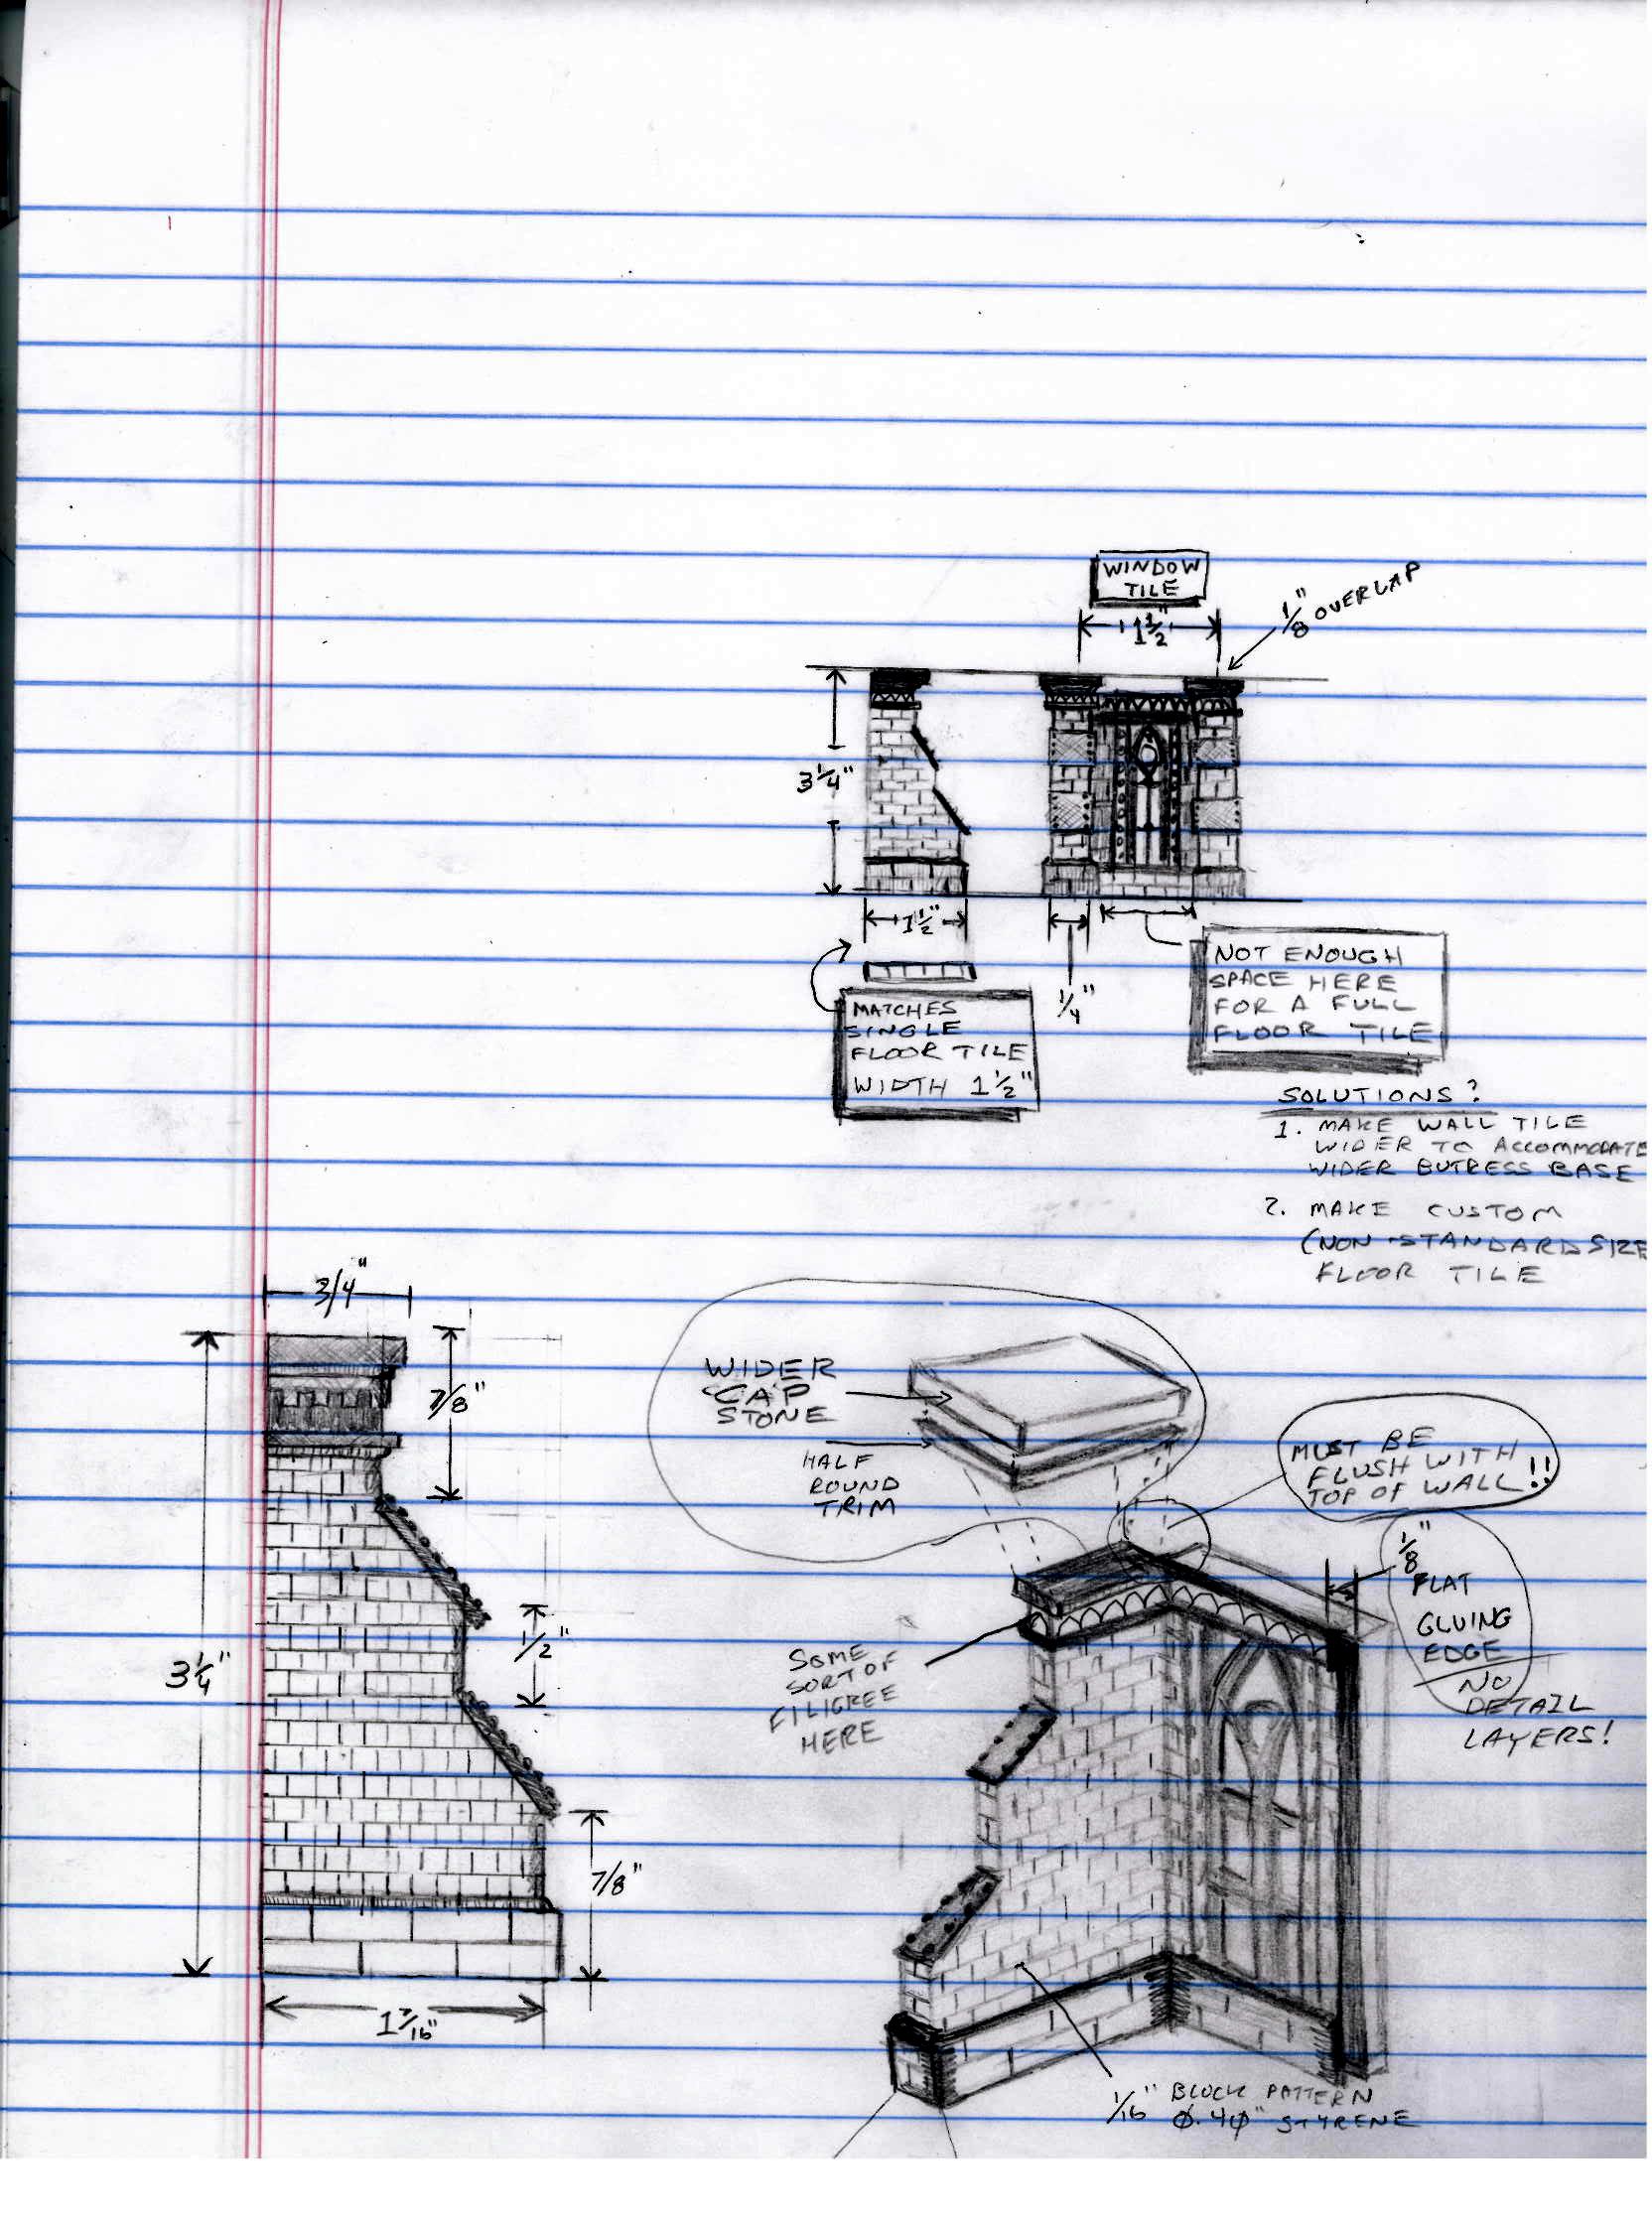 WINDOW
TILE
1 1/2"
1/8" OVERLAP
3 1/4"
1 1/2"
1/4"
NOT ENOUGH
SPACE HERE
FOR A FULL
FLOOR TILE
MATCHES
SINGLE
FLOOR TILE
WIDTH 1 1/2"
SOLUTIONS?
1. MAKE WALL TILE
WIDER TO ACCOMMODATE
WIDER BUTRESS BASE
2. MAKE CUSTOM
(NON-STANDARD SIZE
FLOOR TILE
3/4"
7/8"
3 1/4"
1/2"
7/8"
1 7/16"
WIDER
CAP
STONE
HALF
ROUND
TRIM
MUST BE
FLUSH WITH
TOP OF WALL!!
1/8"
FLAT
GLUING
EDGE
NO
DETAIL
LAYERS!
SOME
SORT OF
FILIGREE
HERE
1/16" BLOCK PATTERN
0.40" STYRENE